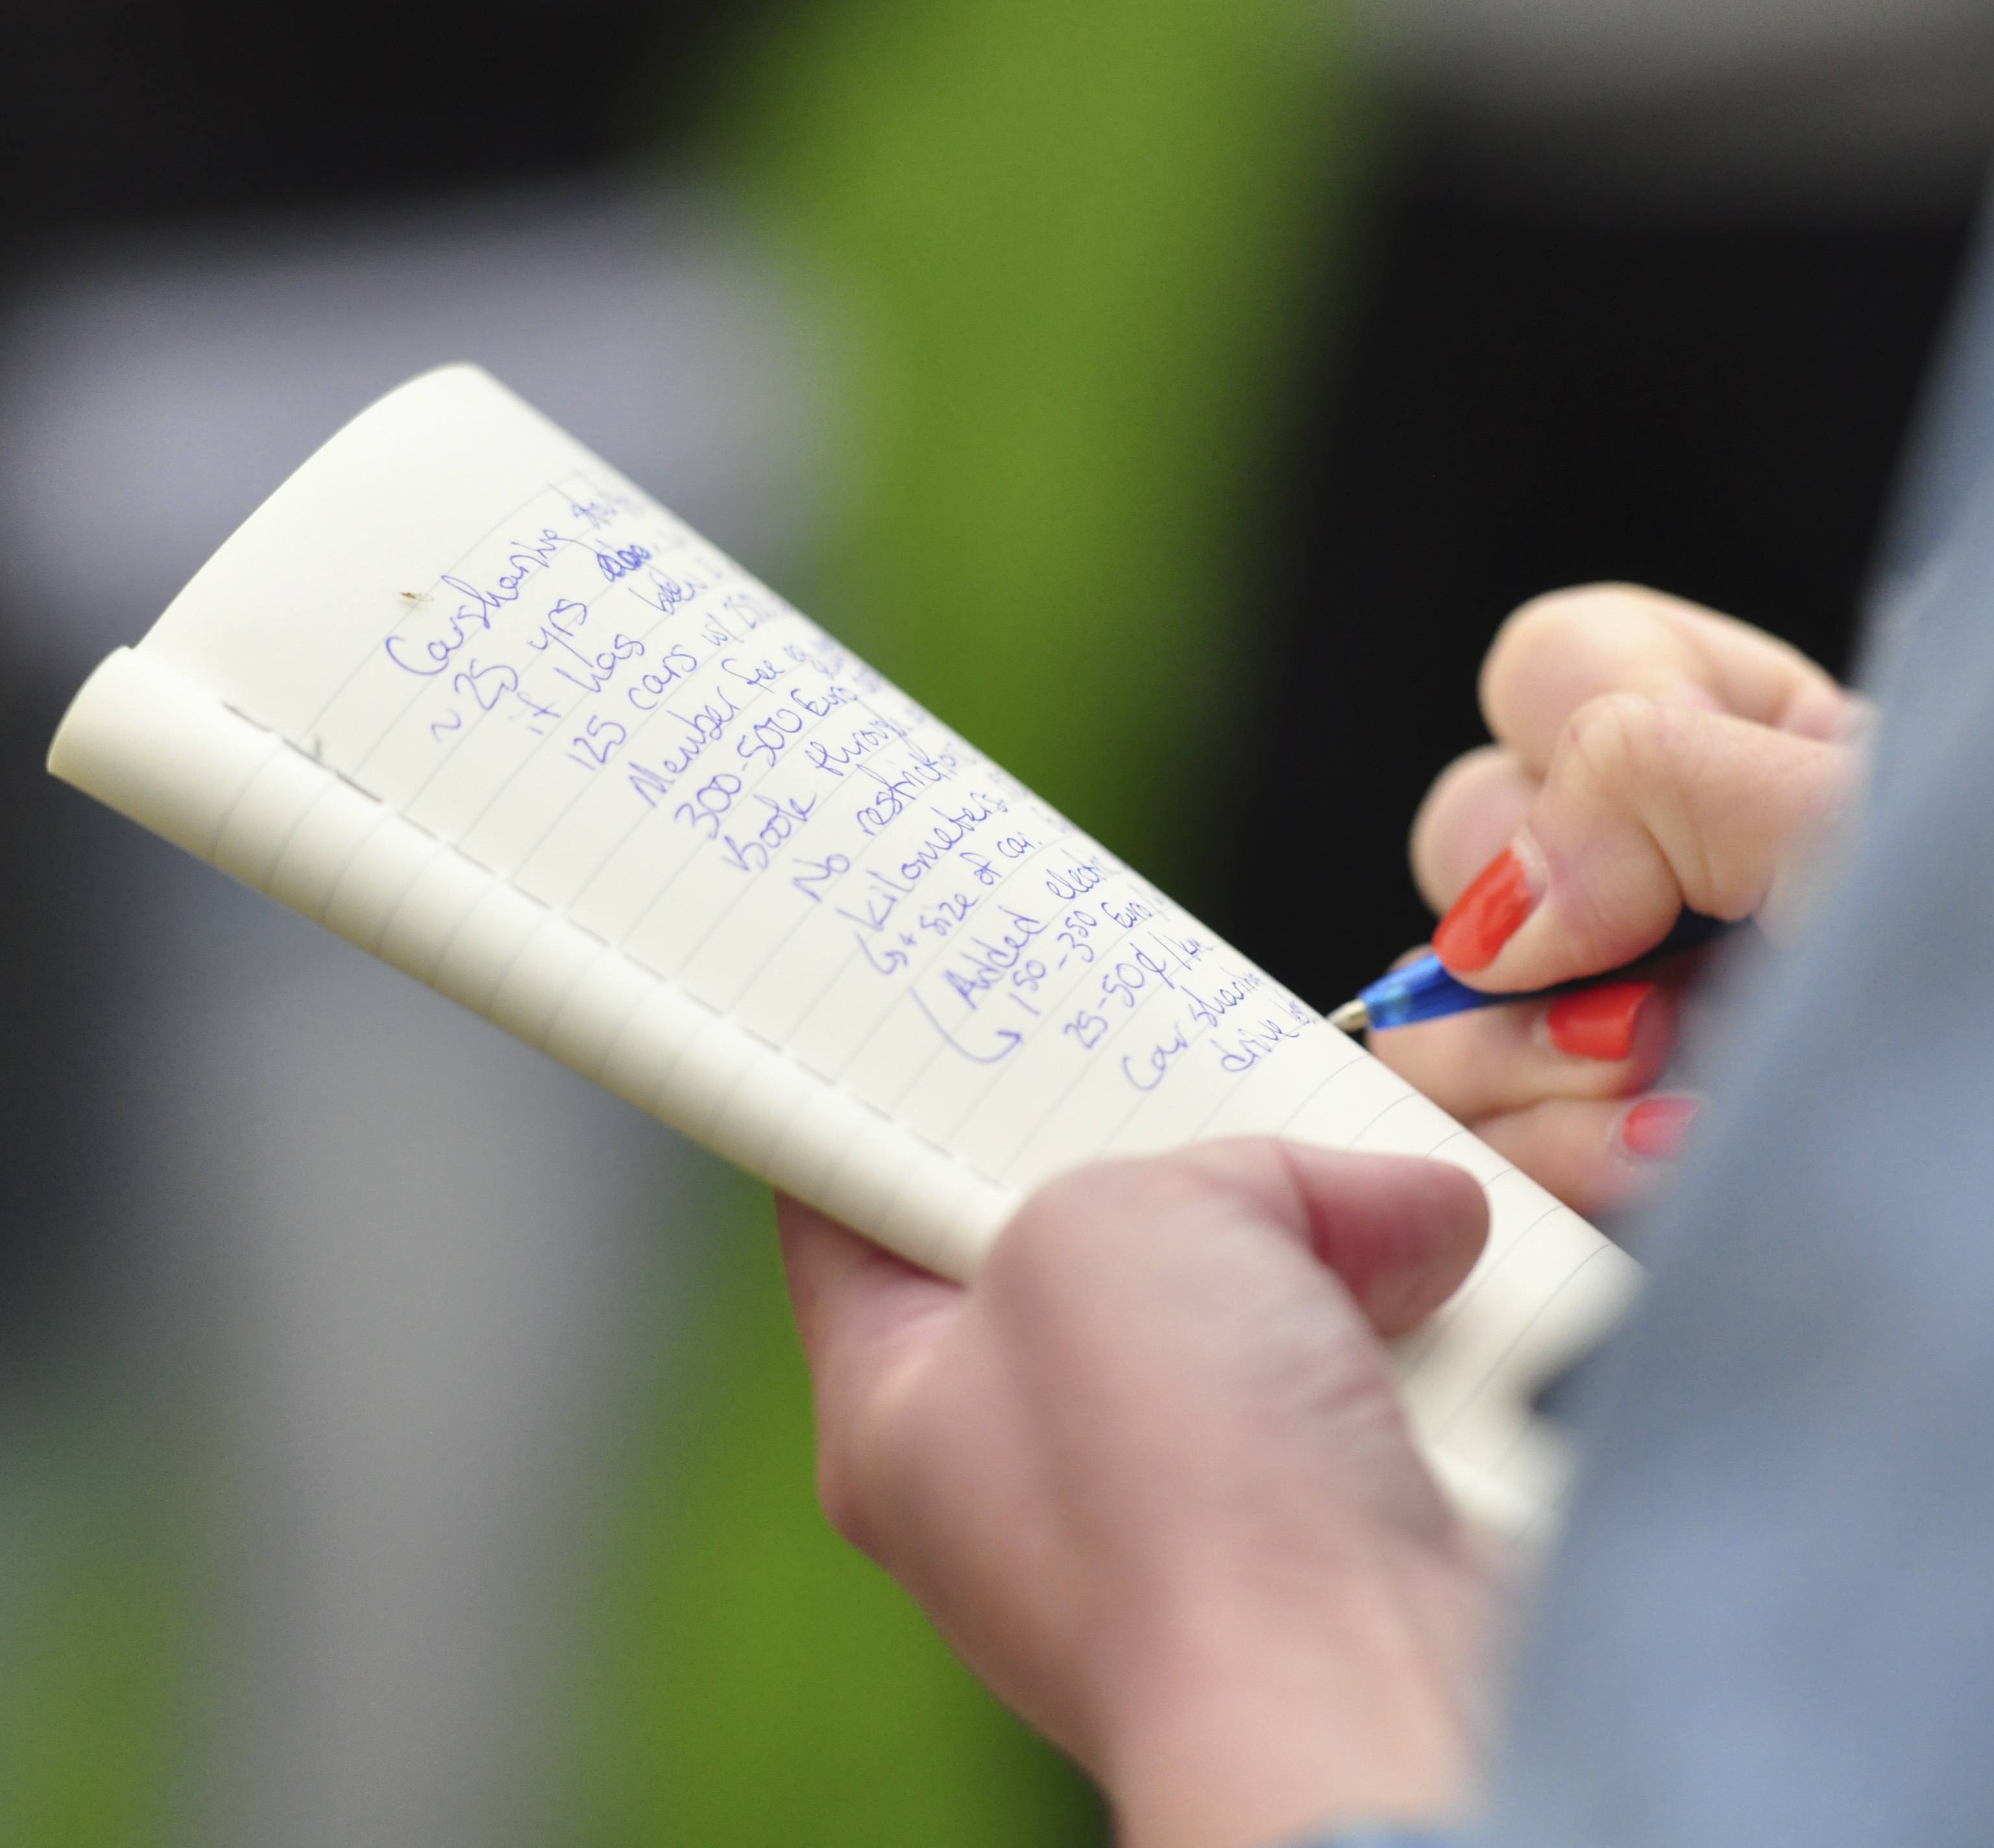 Carsharing
~ 25 yrs
it has been
125 cars w/ 250
Member fee
300-500 Euro
Book through
No restriction
kilometers
↳ + size of car.
Added electric
↳ 150-350 Euro
25-50¢/km
Car sharing
drive